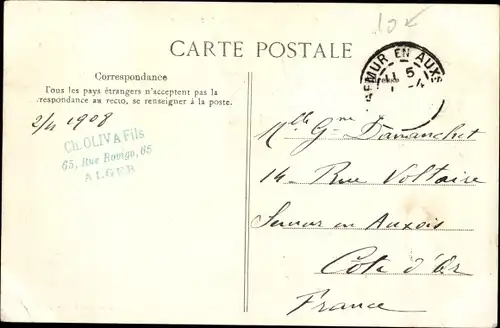 10
CARTE POSTALE
Correspondance
Tous les pays étrangers n'acceptent pas la
correspondance au recto, se renseigner à la poste.
2/4 1908
CH. OLIVA Fils
65, Rue Rovigo, 65
ALGER
SEMUR EN AUXS
11 5
4
Mlle Gne Damanchet
14 Rue Voltaire
Semur en Auxois
Côte d'Or
France